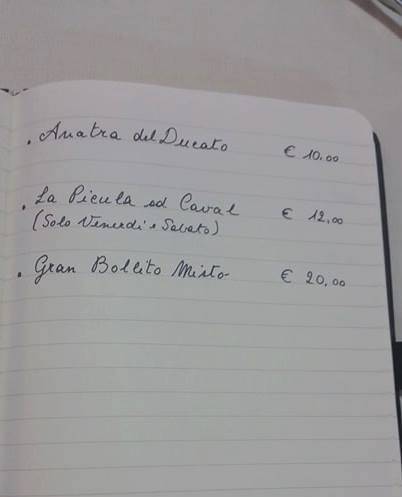 . Anatra del Ducato € 10,00
. La Picula ad Caval € 12,00
(Solo Venerdì e Sabato)
. Gran Bollito Misto € 20,00